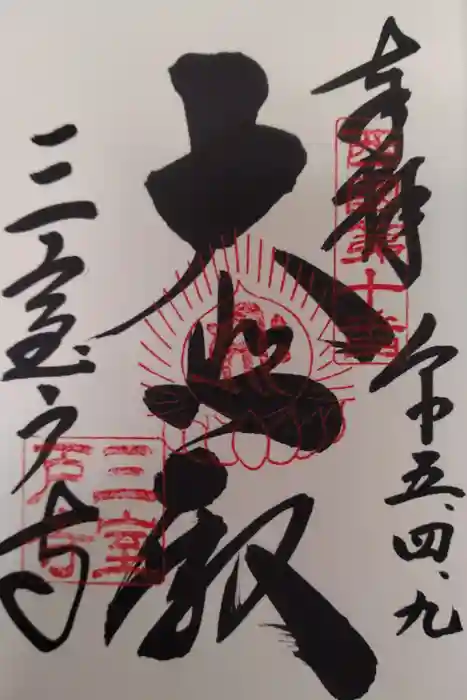 奉拝 令五、四、九
西國第十番
大悲殿
三室戸寺
三室戸寺